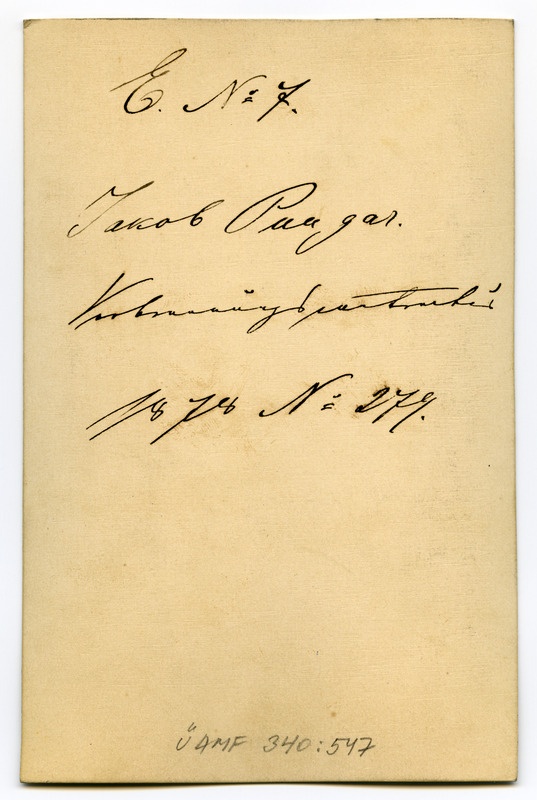 E. № 7.
Jakob Puugar.
1878 № 279.
ÜAMF 340:547